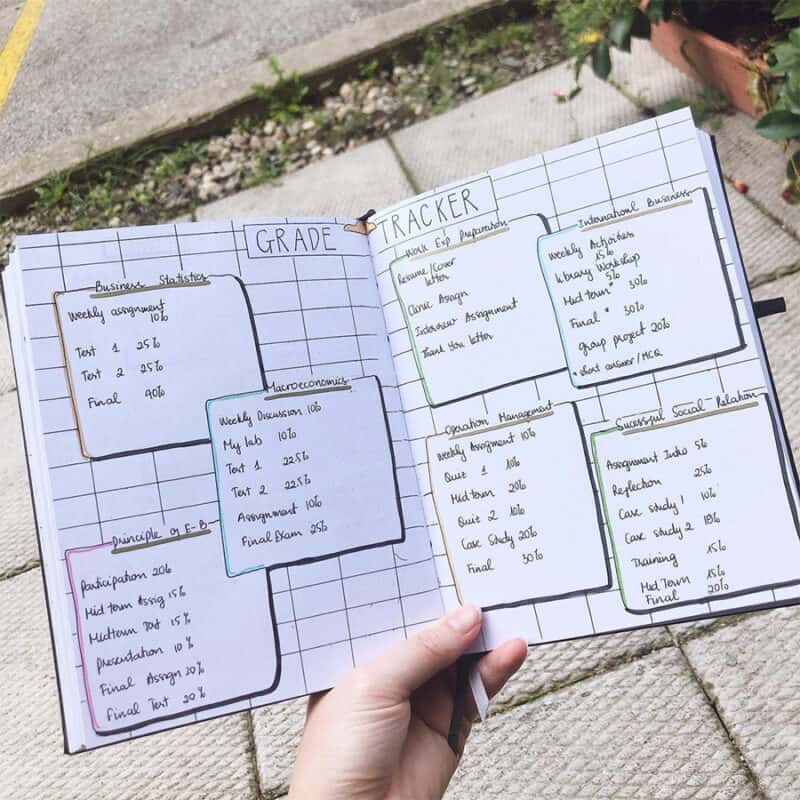 GRADE
Business Statistics
Weekly assignment
10%
Test 1 25%
Test 2 25%
Final 40%
Macroeconomics
Weekly Discussion 10%
My lab 10%
Test 1 22.5%
Test 2 22.5%
Assignment 10%
Final Exam 25%
Principle of E-B
Participation 20%
Mid term Assig 15%
Midterm Test 15%
Presentation 10%
Final Assign 20%
Final Test 20%
TRACKER
Work Exp Preparation
Resume/Cover
letter
Clinic Assign
Interview Assignment
Thank You letter
Internationl Business
Weekly Activities
15%
library Workshop
5%
Mid term* 30%
Final * 30%
group project 20%
* short answer/MCQ
Operation Management
Weekly Assigment 10%
Quiz 1 10%
Mid term 20%
Quiz 2 10%
Case Study 20%
Final 30%
Sucessful Social-Relation
Assignment Intro 5%
Reflection 25%
Case study 1 10%
Case study 2
Training 15%
Mid Term 15%
Final 20%